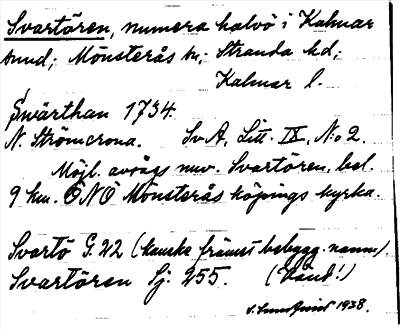 Svartören, numera halvö i Kalmar
sund; Mönsterås sn; Stranda hd;
Kalmar l.
Swärthan 1734.
N. Strömcrona. Sv A, Litt. IX, No 2.
Möjl. avsågs nuv. Svartören, bel.
9 km. ÖNÖ Mönsterås köpings kyrka.
Svartö G. 22 (kanske främst bebygg. namn).
Svartören Sj. 255. (Känd!)
S. Lundqvist 1938.